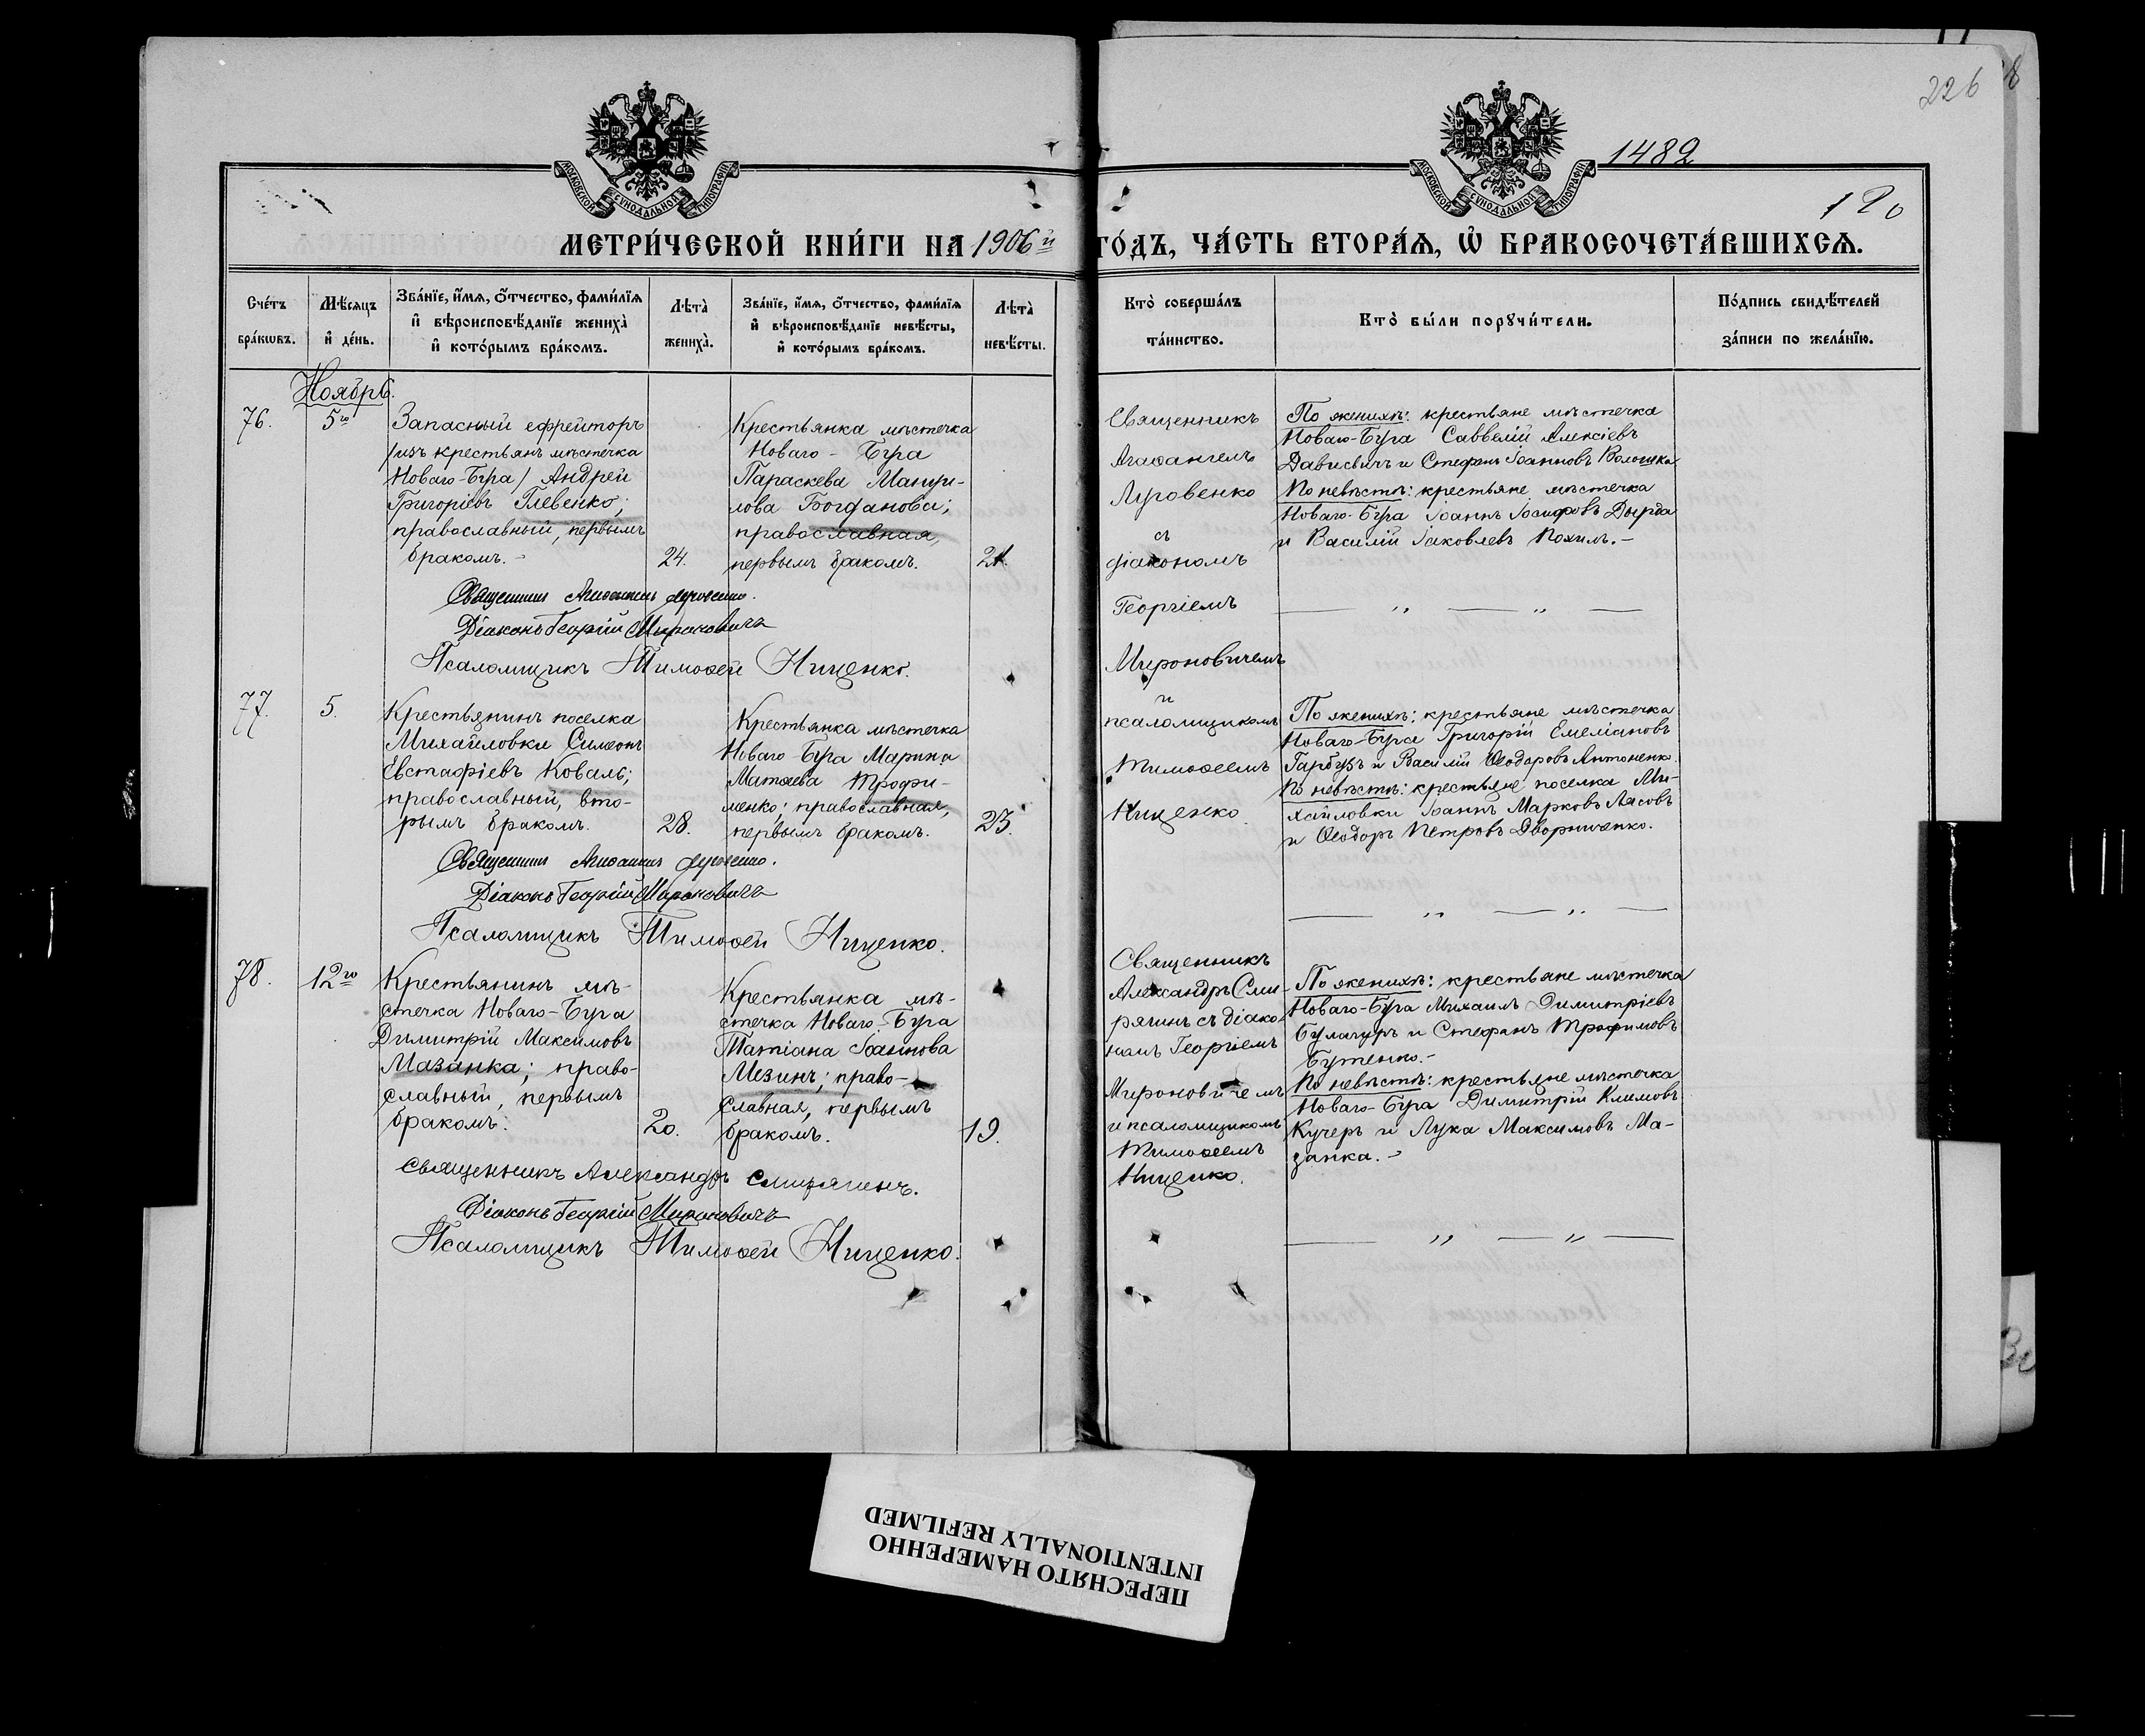 226
1482
120
МОСКОВСКОЙ СѴНОДАЛЬНОЙ ТИПОГРАФІИ
МОСКОВСКОЙ СѴНОДАЛЬНОЙ ТИПОГРАФІИ
МЕТРИ́ЧЕСКОЙ КНИ́ГИ НА 1906й ГО́ДЪ, ЧА́СТЬ ВТОРА́Ѧ, Ѡ҆ БРАКОСОЧЕТА́ВШИХСѦ.
Сче́тъ бра́кѡвъ.
Мѣ́сяцъ и҆ де́нь.
Зва́нїе, и҆́мѧ, ѻ҆́тчество, фами́лїѧ и҆ вѣроисповѣ́данїе жениха̀ и҆ кото́рымъ бра́комъ.
Лѣта̀ жениха̀.
Зва́нїе, и҆́мѧ, ѻ҆́тчество, фами́лїѧ и҆ вѣроисповѣ́данїе невѣ́сты, и҆ кото́рымъ бра́комъ.
Лѣта̀ невѣ́сты.
Кто̀ соверша́лъ та́инство.
Кто̀ бы́ли порꙋчи́тели.
По́дпись свидѣ́телей за́писи по жела́нїю.
Ноябрь.
76.
5го
Запасный ефрейторъ
/изъ крестьянъ мѣстечка
Новаго-Буга/ Андрей
Григоріевъ Глевенко;
православный, первымъ
бракомъ.-
24.
Крестьянка мѣстечка
Новаго-Буга
Параскева
Богданова;
православная,
первымъ бракомъ.
21.
Священникъ
Агаѳангелъ
Луговенко
съ
діакономъ
Георгіемъ
Мироновичемъ
и
псаломщикомъ
Тимоѳеемъ
Нищенко
По женихѣ: крестьяне мѣстечка
Новаго-Буга Саввелій Алексіевъ
и Стефанъ Іоанновъ Волошка.
По невѣстѣ: крестьяне мѣстечка
Новаго-Буга Іоаннъ Іосифовъ Дырда
и Василій Іаковлевъ Похилъ.-
Священникъ Агаѳангелъ Луговенко.
Діаконъ Георгій Мироновичъ
Псаломщикъ Тимоѳей Нищенко.
77.
5.
Крестьянинъ поселка
Михайловки Симеонъ
Евстафіевъ Коваль;
православный, вто-
рымъ бракомъ.
28.
Крестьянка мѣстечка
Новаго-Буга Марина
Матѳеева Трофи-
менко; православная,
первымъ бракомъ.
23.
По женихѣ: крестьяне мѣстечка
Новаго-Буга Григорій Емеліановъ
Гарбузъ и Василій Ѳеодоровъ Антоненко.
По невѣстѣ: крестьяне поселка Ми-
хайловки Іоаннъ Марковъ Лясовъ
и Ѳеодоръ Петровъ Дворниченко.
Священникъ Агаѳангелъ Луговенко.
Діаконъ Георгій Мироновичъ
Псаломщикъ Тимоѳей Нищенко.
78.
12го
Крестьянинъ мѣ-
стечка Новаго-Буга
Димитрій Максимовъ
Мазанка; право-
славный, первымъ
бракомъ.
20.
Крестьянка мѣ-
стечка Новаго-Буга
Татіана Іоаннова
Мезинъ; право-
славная, первымъ
бракомъ.
19.
Священникъ
Александръ Сми-
рягинъ съ діако-
номъ Георгіемъ
Мироновичемъ
и псаломщикомъ
Тимоѳеемъ
Нищенко.
По женихѣ: крестьяне мѣстечка
Новаго-Буга Михаилъ Димитріевъ
и Стефанъ Трофимовъ
Бутенко.-
По невѣстѣ: крестьяне мѣстечка
Новаго-Буга Димитрій Климовъ
Кучеръ и Лука Максимовъ Ма-
занка.-
Священникъ Александръ Смирягинъ.
Діаконъ Георгій Мироновичъ
Псаломщикъ Тимоѳей Нищенко.
ПЕРЕСНЯТО НАМЕРЕННО
INTENTIONALLY REFILMED